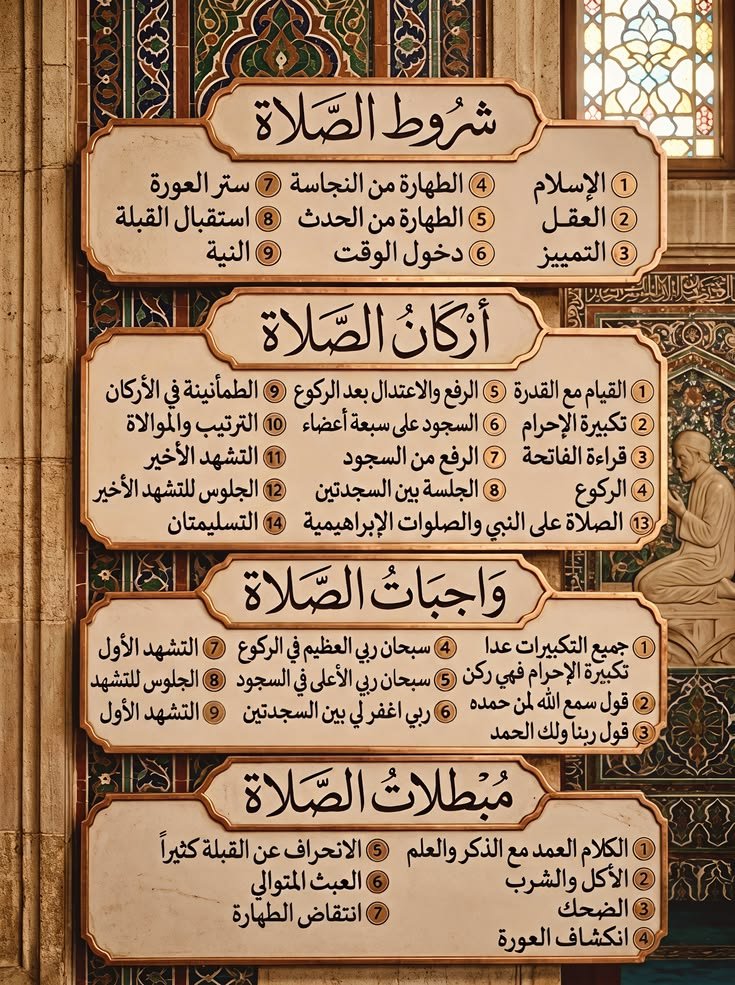 شُروط الصَّلاة
1 الإسلام
2 العقل
3 التمييز
4 الطهارة من النجاسة
5 الطهارة من الحدث
6 دخول الوقت
7 ستر العورة
8 استقبال القبلة
9 النية
أرْكَانُ الصَّلاة
1 القيام مع القدرة
2 تكبيرة الإحرام
3 قراءة الفاتحة
4 الركوع
5 الرفع والاعتدال بعد الركوع
6 السجود على سبعة أعضاء
7 الرفع من السجود
8 الجلسة بين السجدتين
9 الطمأنينة في الأركان
10 الترتيب والموالاة
11 التشهد الأخير
12 الجلوس للتشهد الأخير
13 الصلاة على النبي والصلوات الإبراهيمية
14 التسليمتان
وَاجِبَاتُ الصَّلاة
1 جميع التكبيرات عدا
تكبيرة الإحرام فهي ركن
2 قول سمع الله لمن حمده
3 قول ربنا ولك الحمد
4 سبحان ربي العظيم في الركوع
5 سبحان ربي الأعلى في السجود
6 ربي اغفر لي بين السجدتين
7 التشهد الأول
8 الجلوس للتشهد
9 التشهد الأول
مُبْطلاتُ الصَّلاة
1 الكلام العمد مع الذكر والعلم
2 الأكل والشرب
3 الضحك
4 انكشاف العورة
5 الانحراف عن القبلة كثيراً
6 العبث المتوالي
7 انتقاض الطهارة